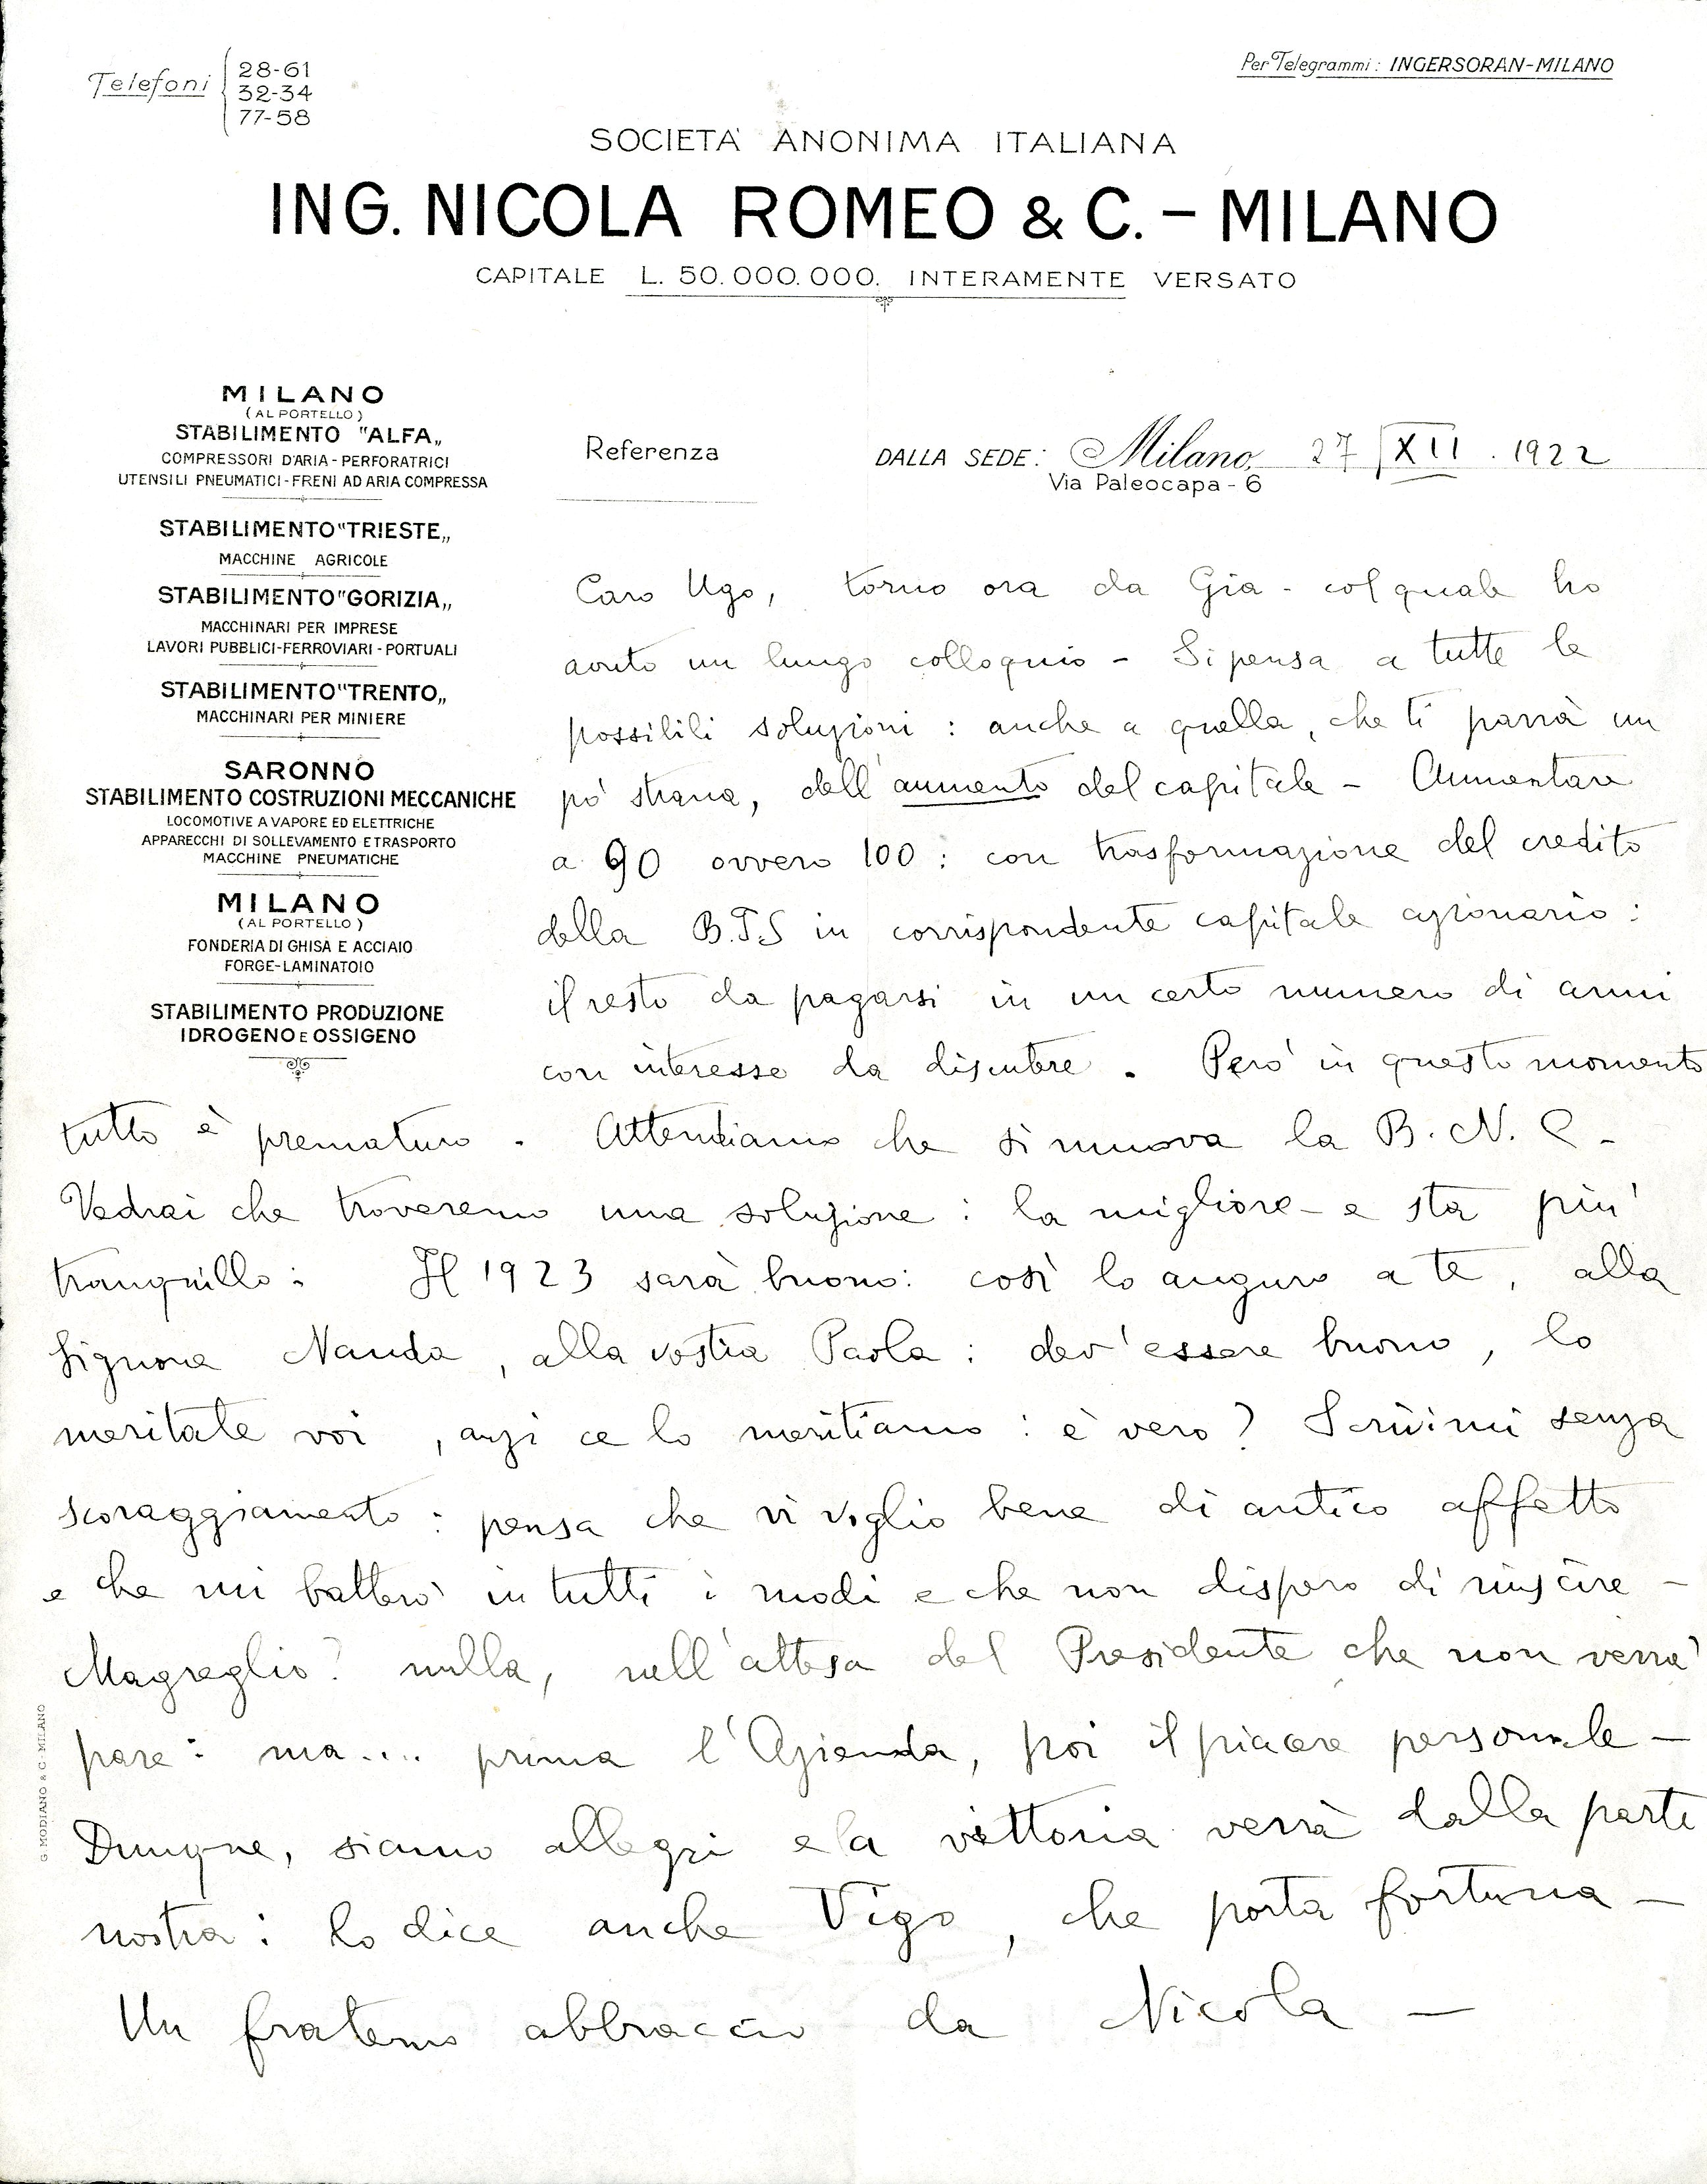 Telefoni 28-61
32-34
77-58
Per Telegrammi: INGERSORAN-MILANO
SOCIETA' ANONIMA ITALIANA
ING. NICOLA ROMEO & C. – MILANO
CAPITALE L. 50.000.000. INTERAMENTE VERSATO
MILANO
(AL PORTELLO)
STABILIMENTO "ALFA„
COMPRESSORI D'ARIA - PERFORATRICI
UTENSILI PNEUMATICI - FRENI AD ARIA COMPRESSA
STABILIMENTO "TRIESTE„
MACCHINE AGRICOLE
STABILIMENTO "GORIZIA„
MACCHINARI PER IMPRESE
LAVORI PUBBLICI-FERROVIARI - PORTUALI
STABILIMENTO "TRENTO„
MACCHINARI PER MINIERE
SARONNO
STABILIMENTO COSTRUZIONI MECCANICHE
LOCOMOTIVE A VAPORE ED ELETTRICHE
APPARECCHI DI SOLLEVAMENTO E TRASPORTO
MACCHINE PNEUMATICHE
MILANO
(AL PORTELLO)
FONDERIA DI GHISA E ACCIAIO
FORGE-LAMINATOIO
STABILIMENTO PRODUZIONE
IDROGENO E OSSIGENO
Referenza
DALLA SEDE: Milano, 27/XII . 1922
Via Paleocapa - 6
Caro Ugo, torno ora da Gia - col quale ho
avuto un lungo colloquio - Si pensa a tutte le
possibili soluzioni : anche a quella, che ti parrà un
pò strana, dell'aumento del capitale - Aumentare
a 90 ovvero 100 : con trasformazione del credito
della B.I.S in corrispondente capitale azionario :
il resto da pagarsi in un certo numero di anni
con interesse da discutere . Però in questo momento
tutto è prematuro . Attendiamo che si muova la B. N. C -
Vedrai che troveremo una soluzione : la migliore - e sta più
tranquillo : Il 1923 sarà buono : così lo auguro a te, alla
Signora Nanda, alla vostra Paola : dev'essere buono, lo
meritate voi, anzi ce lo meritiamo : è vero ? Scrivimi senza
scoraggiamento : pensa che vi voglio bene di antico affetto
e che mi batterò in tutti i modi e che non dispero di riuscire -
Magreglio ? nulla, nell'attesa del Presidente che non verrà
pare : ma .... prima l'Azienda, poi il piacere personale -
Dunque, siamo allegri e la vittoria verrà dalla parte
nostra : lo dice anche Vigo, che porta fortuna -
Un fraterno abbraccio da Nicola -
G. MODIANO & C - MILANO